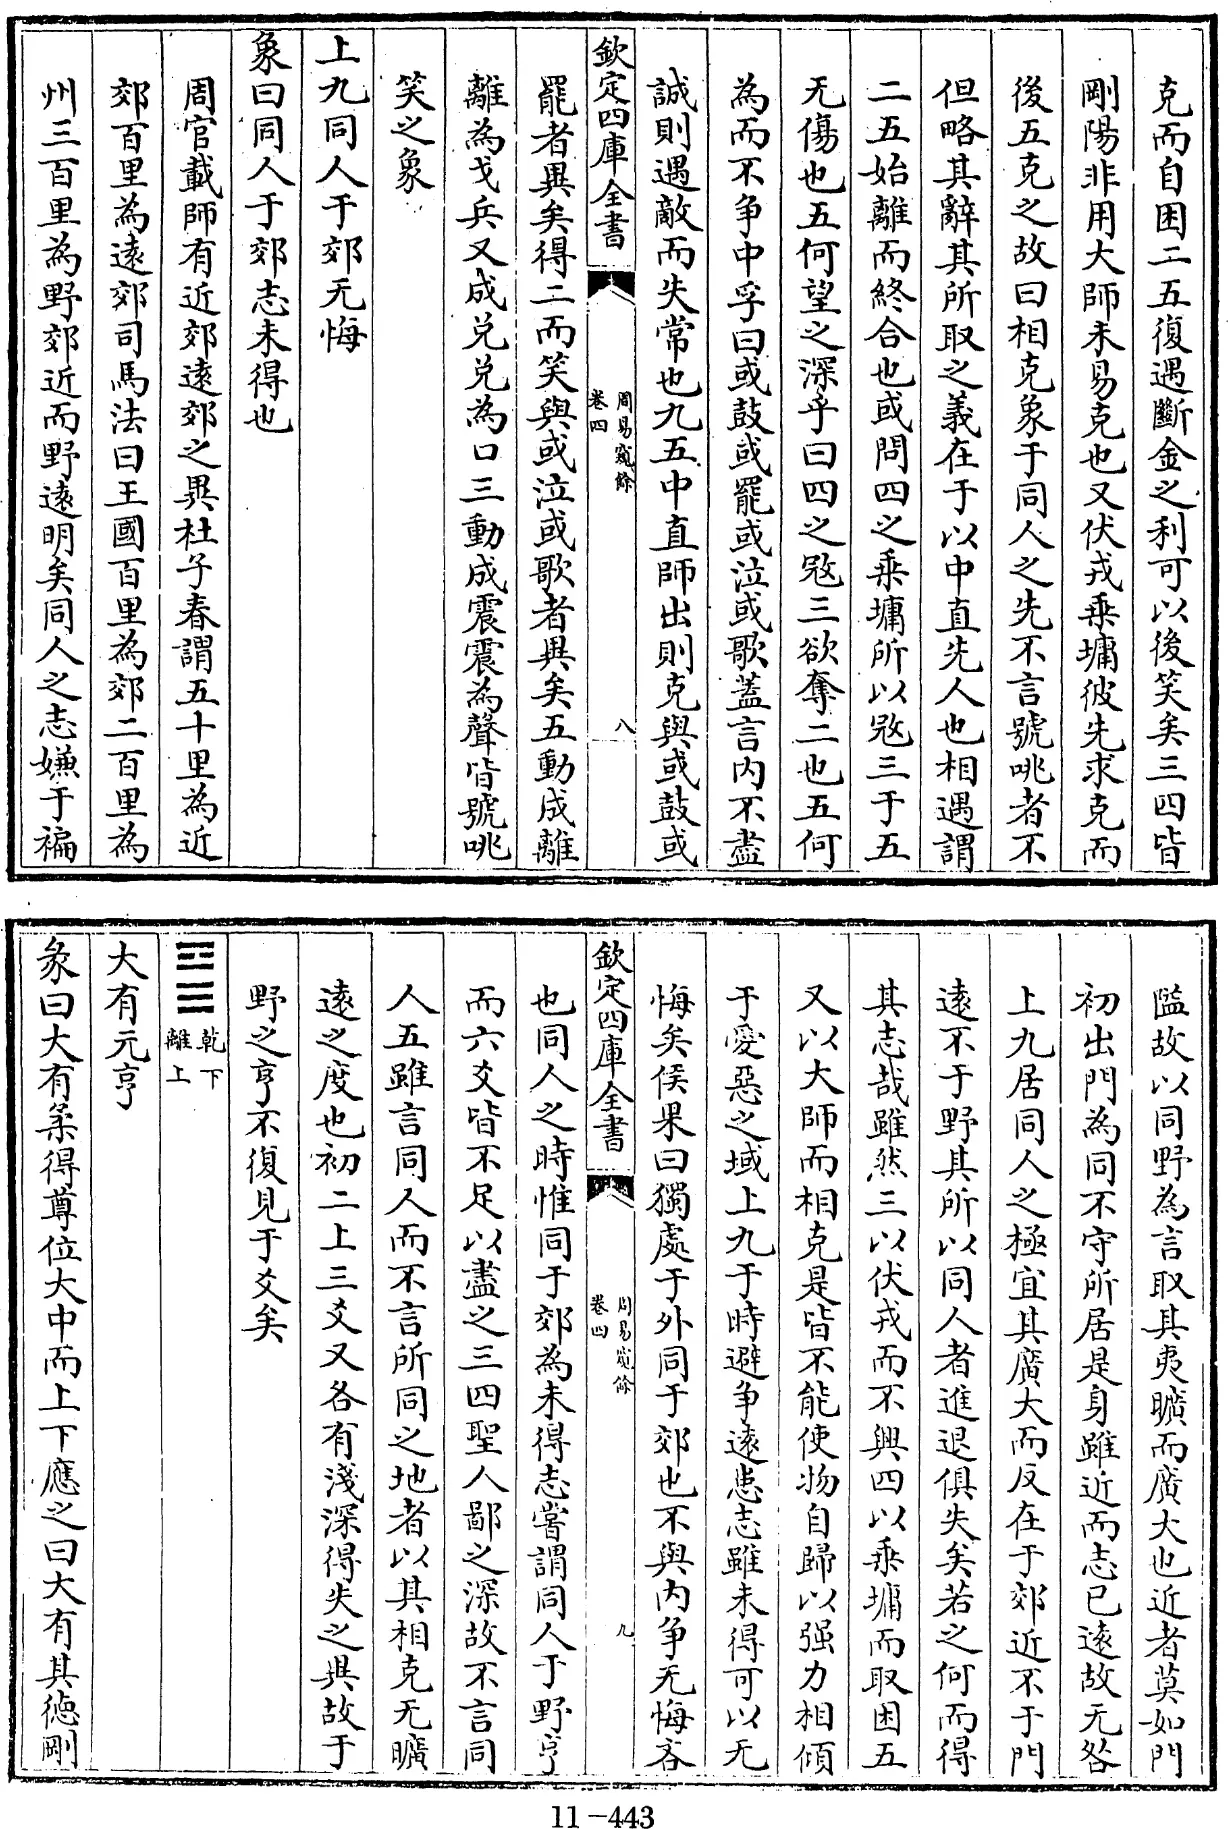 克而自困二五復遇斷金之利可以後笑矣三四皆
剛陽非用大師未易克也又伏戎乘墉彼先求克而
後五克之故曰相克象于同人之先不言號咷者不
但略其辭其所取之義在于以中直先人也相遇謂
二五始離而終合也或問四之乘墉所以𢻹三于五
无傷也五何望之深乎曰四之𢻹三欲奪二也五何
為而不爭中孚曰或鼓或罷或泣或歌蓋言内不盡
誠則遇敵而失常也九五中直師出則克與或鼓或
欽定四庫全書
周易窺餘
卷四
八
罷者異矣得二而笑與或泣或歌者異矣五動成離
離為戈兵又成兌兌為口三動成震震為聲皆號咷
笑之象
上九同人于郊无悔
象曰同人于郊志未得也
周官載師有近郊遠郊之異杜子春謂五十里為近
郊百里為遠郊司馬法曰王國百里為郊二百里為
州三百里為野郊近而野遠明矣同人之志嫌于褊
隘故以同野為言取其夷曠而廣大也近者莫如門
初出門為同不守所居是身雖近而志已遠故无咎
上九居同人之極宜其廣大而反在于郊近不于門
遠不于野其所以同人者進退俱失矣若之何而得
其志哉雖然三以伏戎而不興四以乘墉而取困五
又以大師而相克是皆不能使物自歸以强力相傾
于愛惡之域上九于時避爭遠患志雖未得可以无
悔矣侯果曰獨處于外同于郊也不與内爭无悔吝
欽定四庫全書
周易窺餘
卷四
九
也同人之時惟同于郊為未得志嘗謂同人于野亨
而六爻皆不足以盡之三四聖人鄙之深故不言同
人五雖言同人而不言所同之地者以其相克无曠
遠之度也初二上三爻又各有淺深得失之異故于
野之亨不復見于爻矣
䷍
乾下
離上
大有元亨
彖曰大有柔得尊位大中而上下應之曰大有其德剛
11-443